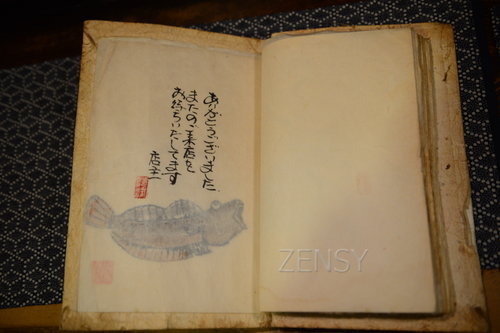 ありがとうございました
またのご来店を
お待ちいたしてます
店主
ZENSY